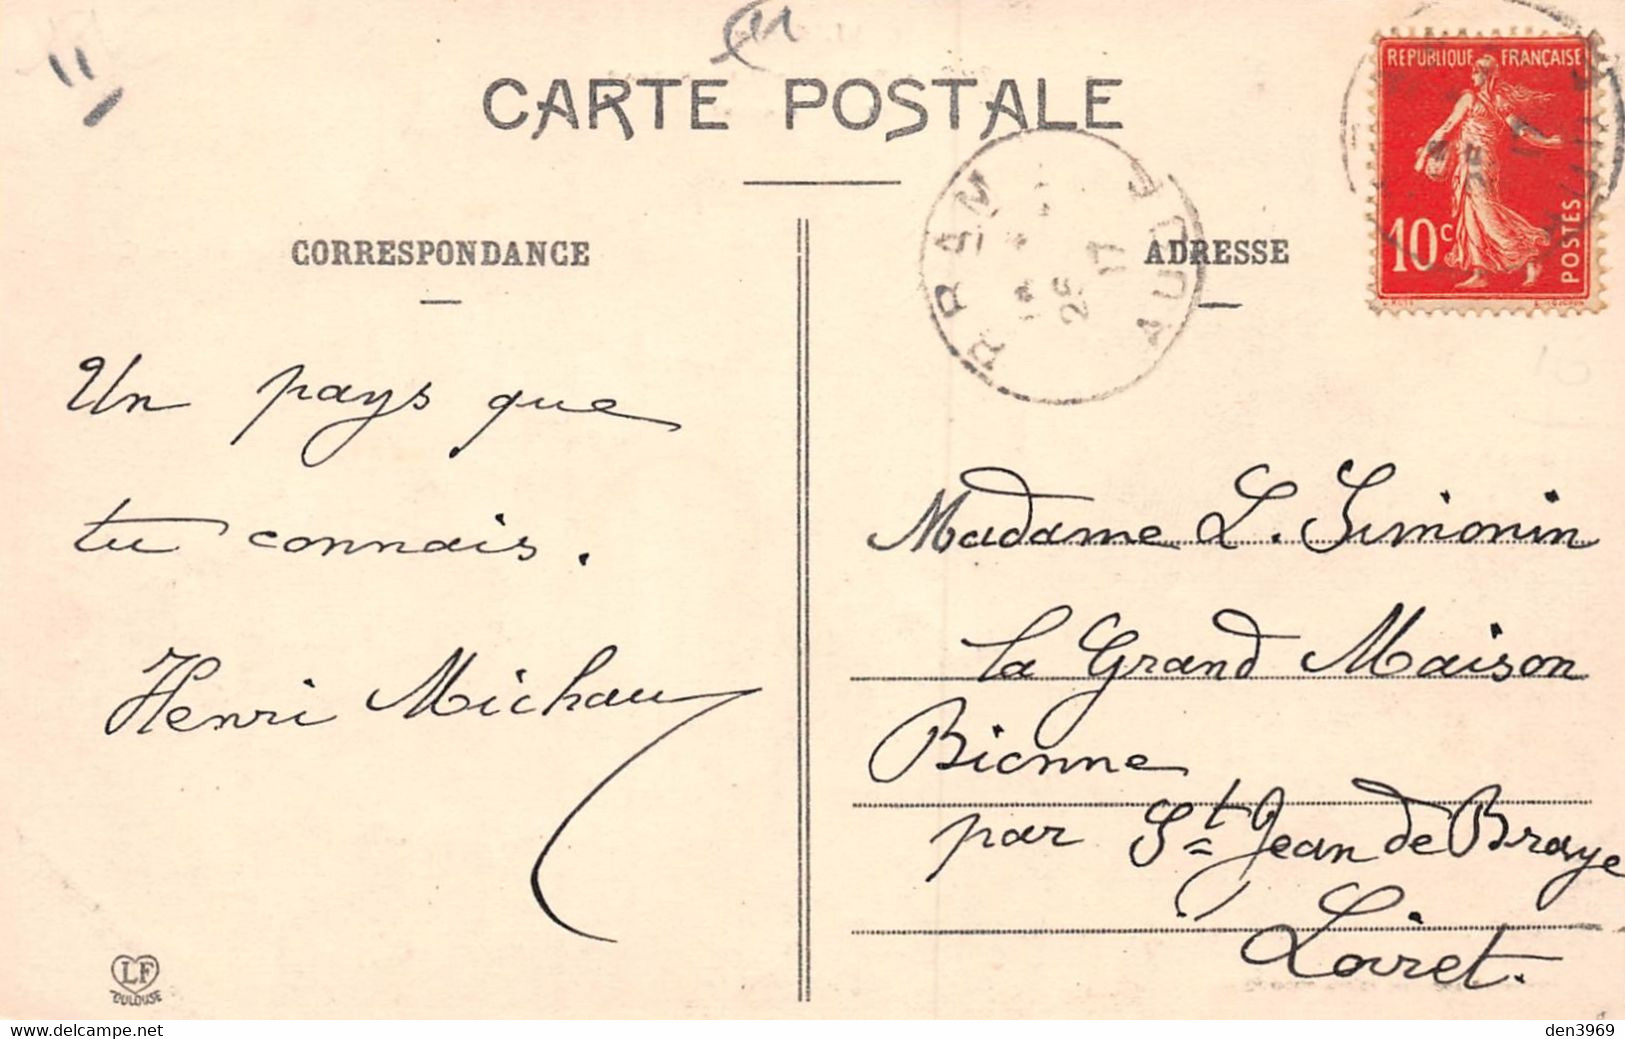 CARTE POSTALE
CORRESPONDANCE
Un pays que
tu connais.
Henri Michau
LF
TOULOUSE
ADRESSE
Madame L. Simonin
la Grand Maison
Bionne
par St Jean de Braye
Loiret.
RÉPUBLIQUE FRANÇAISE
10c
POSTES
25
17
AUDE
www.delcampe.net
den3969